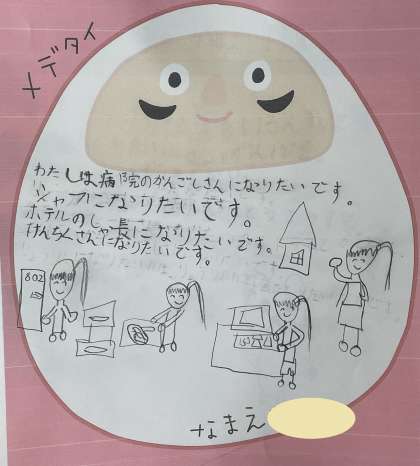 メデタイ
わたしは病院のかんごしさんになりたいです。
シャフになりたいです。
ホテルのしゃ長になりたいです。
けんちくさんになりたいです。
802
なまえ